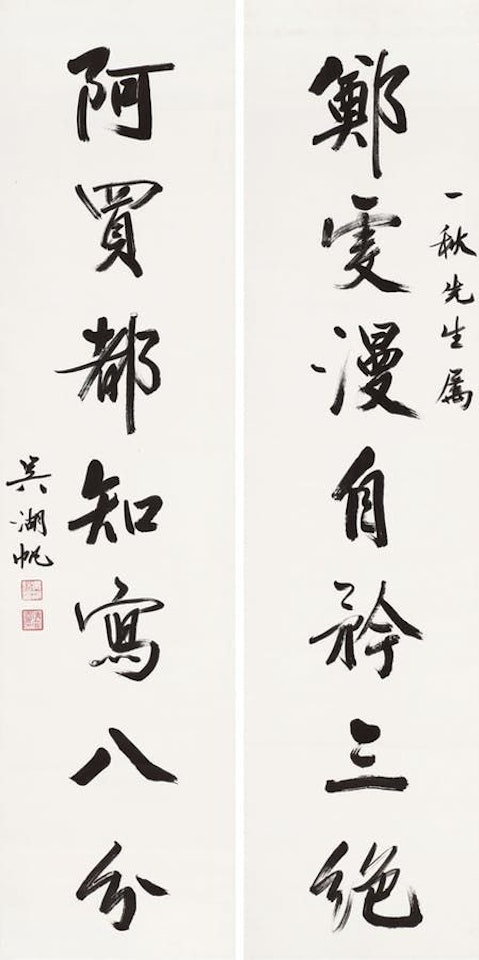 一秋先生属
鄭虔漫自矜三絕
阿買都知寫八分
吳湖帆